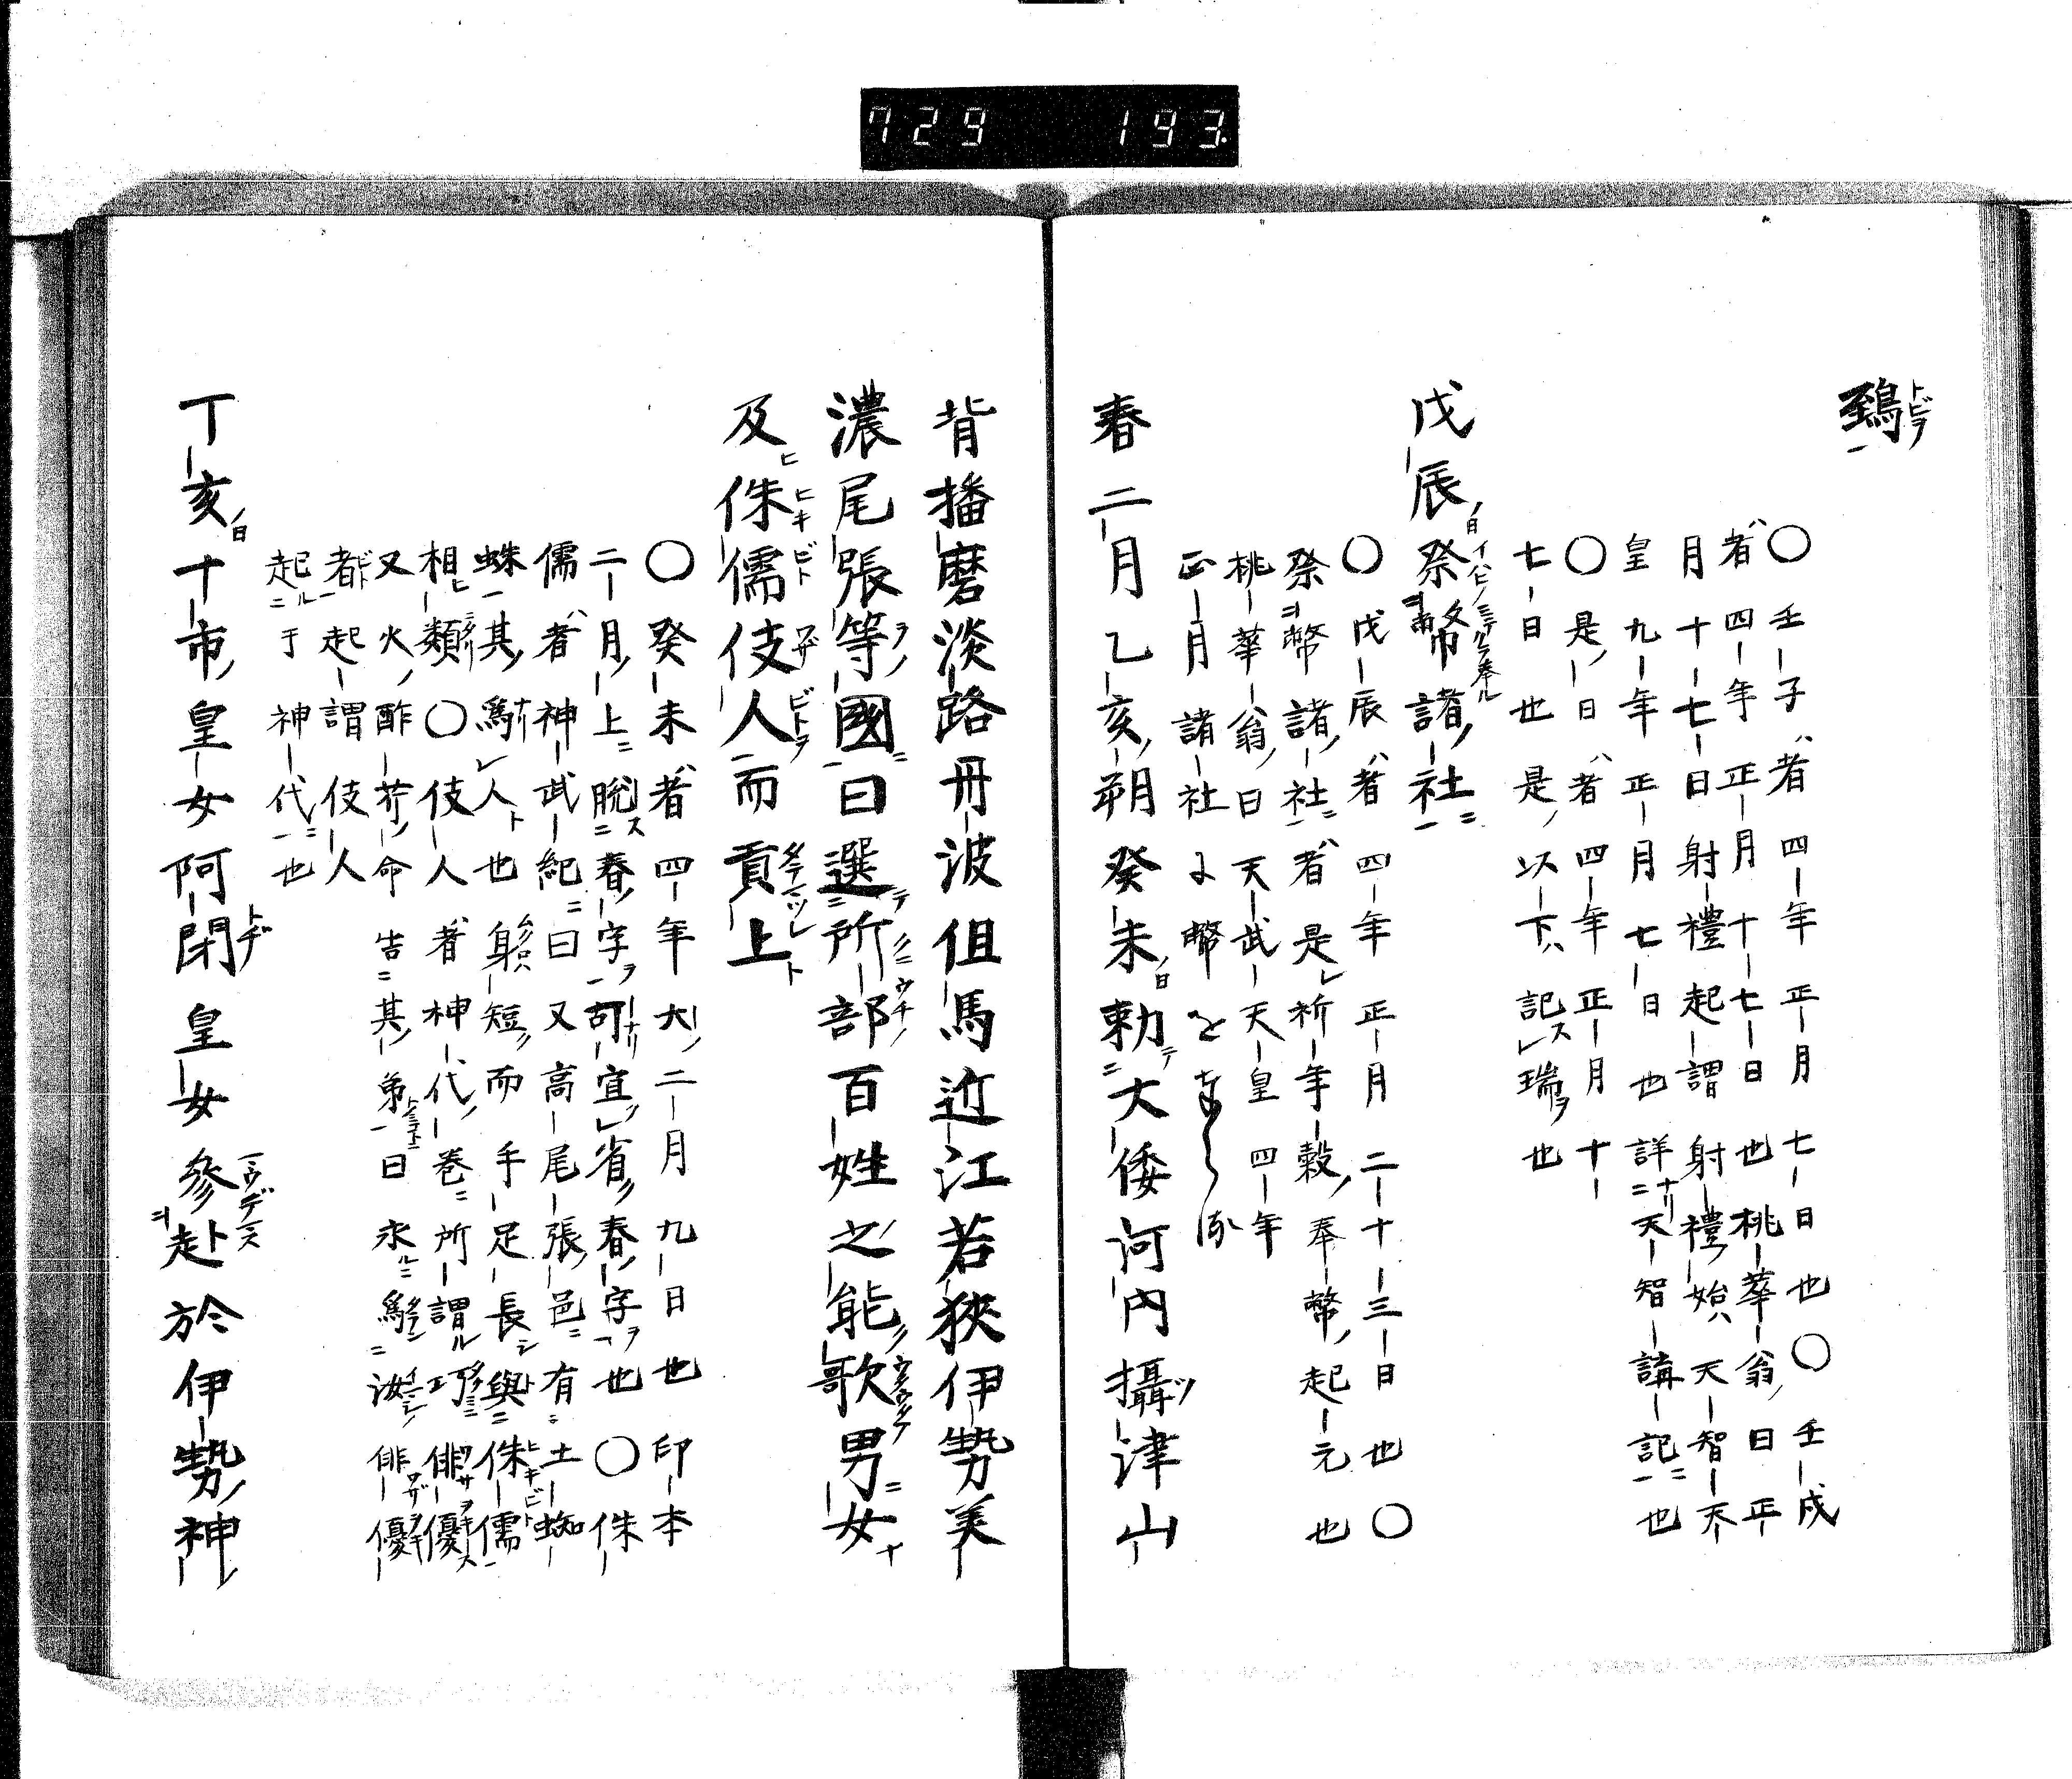 729 193
鵄
〇壬子者四年正月七日也〇壬戌
者四年正月十七日也桃華翁曰正
月十七日射禮起謂射禮始天智天
皇九年正月七日也詳天智講記也
〇是日者四年正月十
七日也是以下記瑞也
戊辰祭幣諸社
〇戊辰者四年正月二十三日也〇
祭幣諸社者是祈年穀奉幣起元也
桃華翁曰天武天皇四年
正月諸社に幣を
春二月乙亥朔癸未勅大倭河内攝津山
背播磨淡路丹波但馬近江若狹伊勢美
濃尾張等國曰選所部百姓之能歌男女
及侏儒伎人而貢上
〇癸未者四年大二月九日也印本
二月上脱春字可宜省春字也〇侏
儒者神武紀曰又高尾張邑有土蜘
蛛其爲人也身短而手足長與侏儒
相類〇伎人者神代巻所謂巧俳優
又火酢芹命告其弟曰永爲汝俳優
者起謂伎人
起于神代也
丁亥十市皇女阿閇皇女參赴於伊勢神